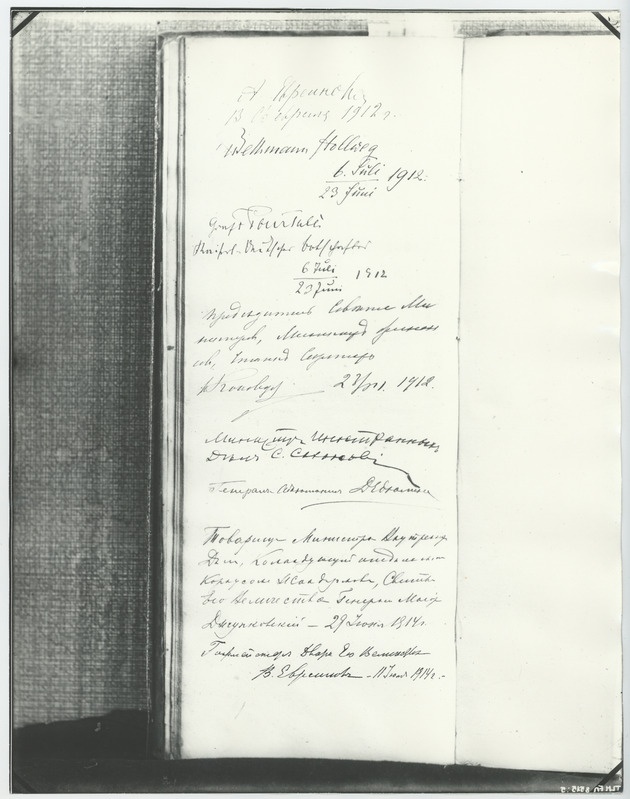 А Евреинов
13 Февраля 1912 г.
Bethmann Hollweg
6. Juli 1912.
23 Juni
Graf Pourtalès
Kaiserl. Deutscher Botschafter
6 Juli 1912
23 Juni
Председатель Совета Ми
нистров, Министр финан
сов, Статс Секретарь
В Коковцов. 23/VI. 1912.
Министръ Иностранныхъ
Дѣлъ С. Сазоновъ
Генералъ Адъютантъ
Товарищъ Министра Внутрен
Дѣлъ, Командующий отдѣльнымъ
Корпусомъ Жандармовъ, Свиты
Его Величества Генералъ Маіоръ
Джунковскій — 29 Іюня 1914 г.
Гофмейстеръ Двора Его Величества
В. Евреиновъ - 11 1914 г.-